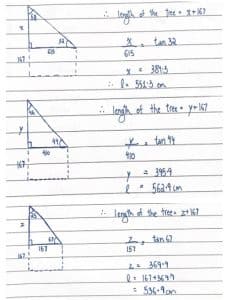 ∴ length of the tree = x+167
58
x
32
615
167
x/615 = tan 32
x = 384.3
∴ l = 551.3 cm
∴ length of the tree = y+167
46
y
44
410
167
y/410 = tan 44
y = 395.9
l = 562.9 cm
∴ length of the tree = z+167
z
67
157
167
z/157 = tan 67
z = 369.9
l = 167+369.9
= 536.9 cm